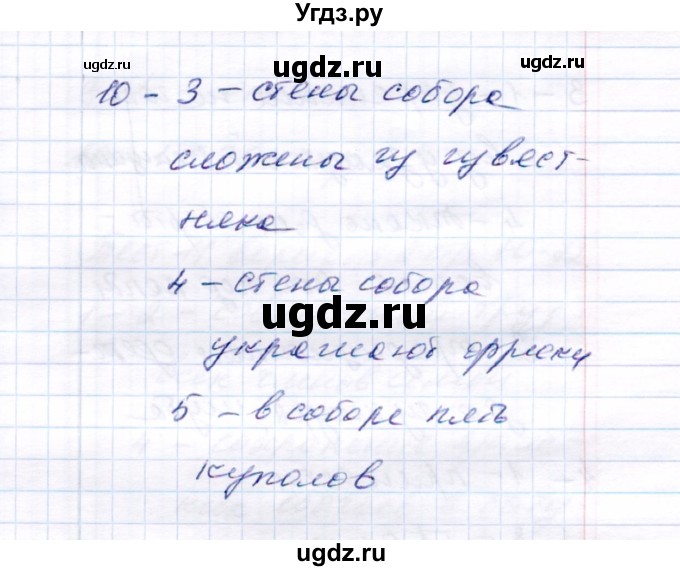 Угдз.ру
ugdz.ru
ugdz.ru
ugdz.ru
10 - 3 - стены собора
сложены из извест-
няка
4 - стены собора
ugdz.ru
ugdz.ru
украшают фрески
5 - в соборе пять
куполов
ugdz.ru
ugdz.ru
ugdz.ru